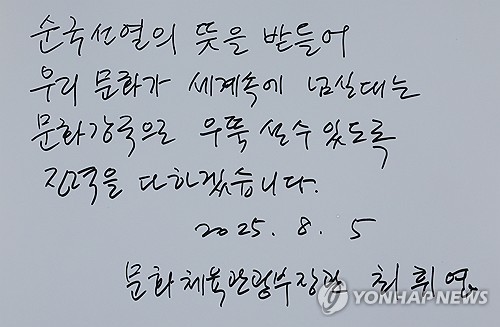 순국선열의 뜻을 받들어
우리 문화가 세계속에 넘실대는
문화강국으로 우뚝 설 수 있도록
진력을 다하겠습니다.
2025. 8. 5
문화체육관광부장관 최휘영
YONHAPNEWS